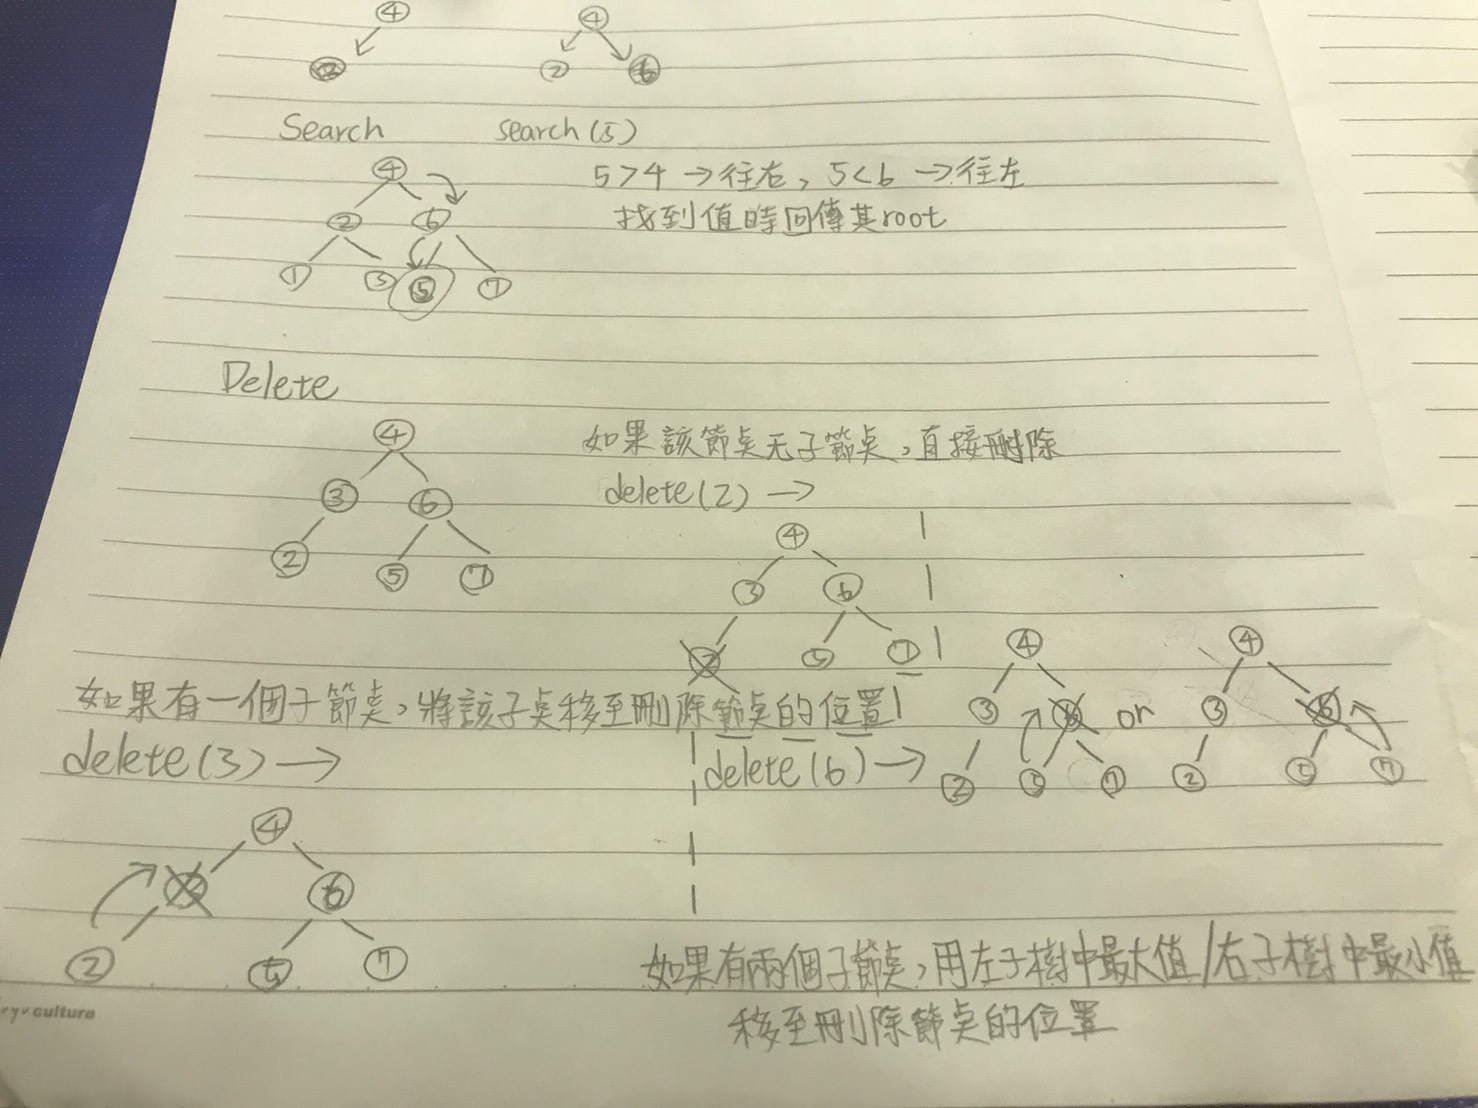 4 4
2 2 6
Search search(5)
4 5>4 →往右, 5<6 →往左
2 6 找到值時回傳其root
1 3 5 7
Delete
4 如果該節点无子節点,直接刪除
3 6 delete(2) →
2 5 7
4
3 6
2 5 7
如果有一個子節点,將該子点移至刪除節点的位置
delete(3) →
4
3 6
2 5 7
delete(6) →
4 4
3 6 or 3 6
2 5 7 2 5 7
如果有兩個子節点,用左子樹中最大值/右子樹中最小值
移至刪除節点的位置
culture